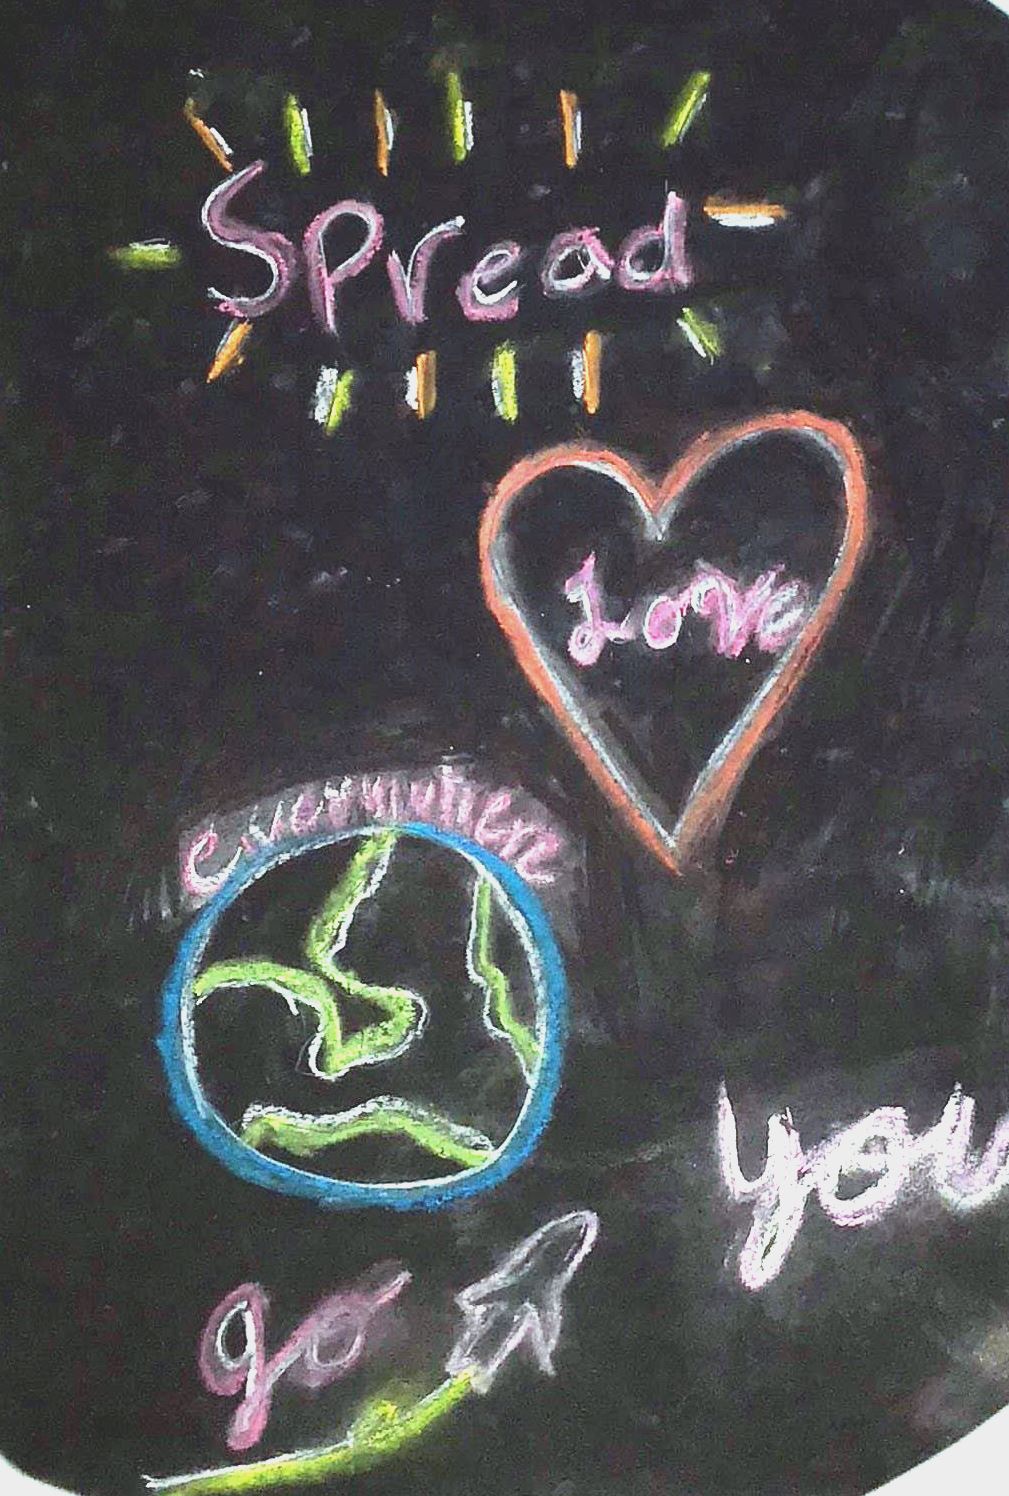 Spread
Love
everywhere
you
go